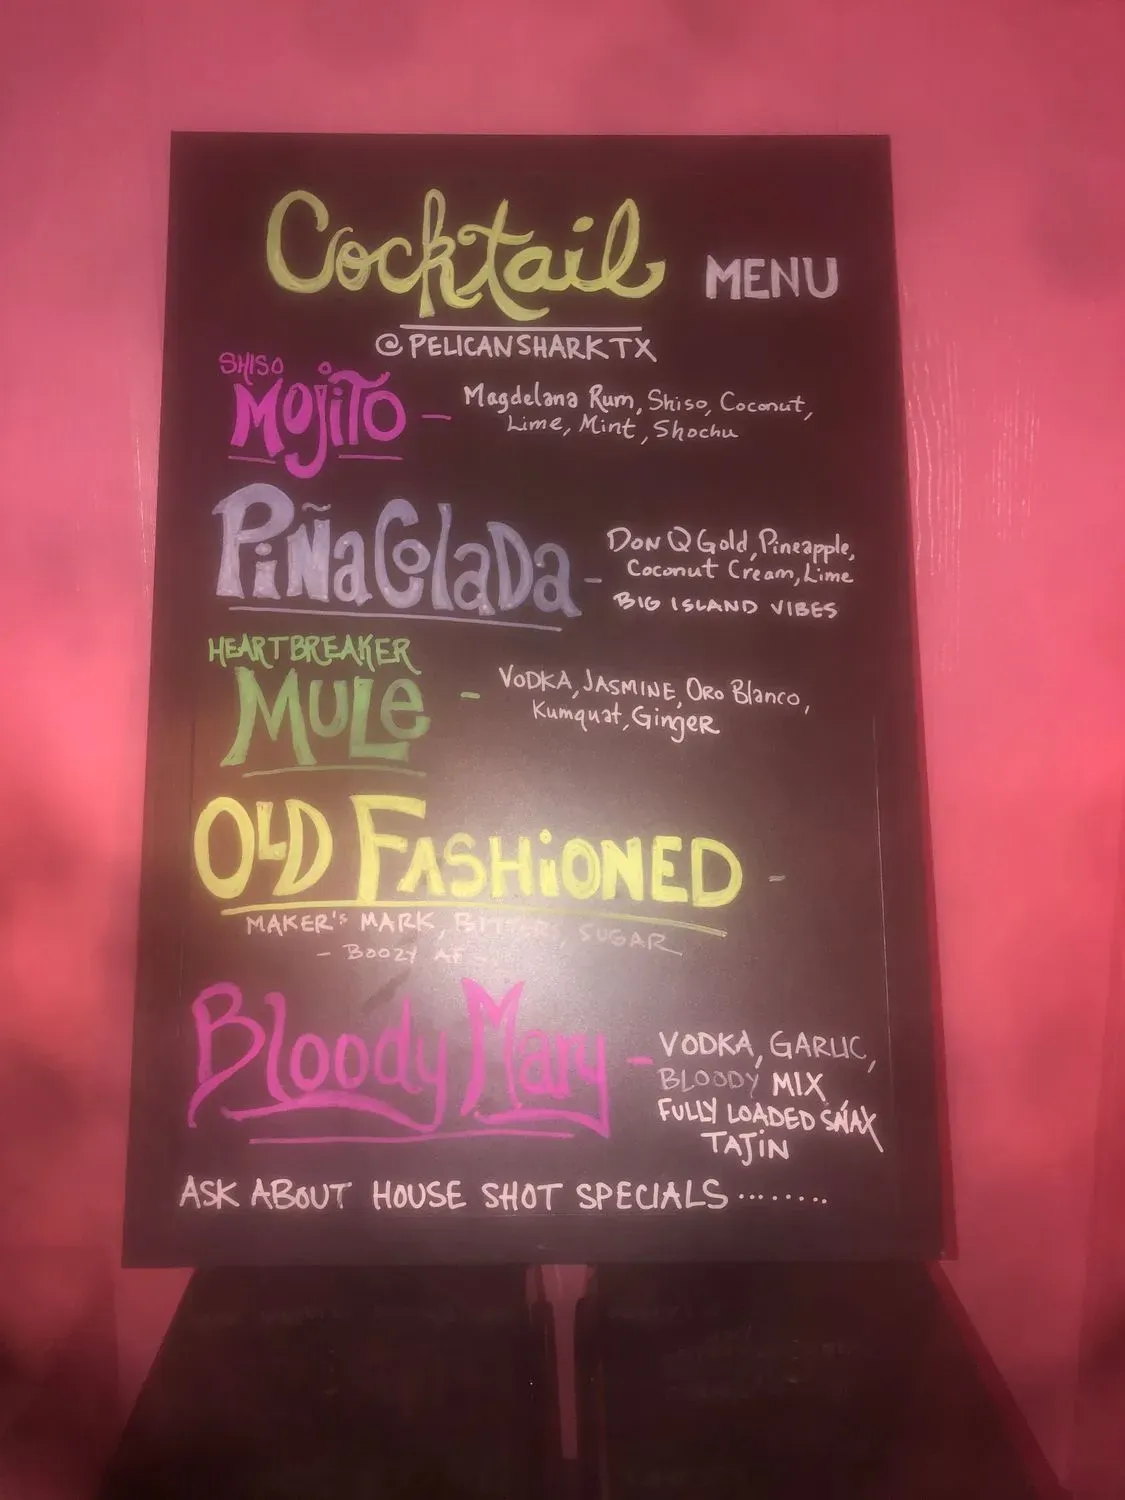 Cocktail MENU
@PELICANSHARKTX
SHISO
MOJITO - Magdelana Rum, Shiso, Coconut,
Lime, Mint, Shochu
PIÑA COLADA - DON Q Gold, Pineapple,
Coconut Cream, Lime
BIG ISLAND VIBES
HEARTBREAKER
MULE - VODKA, JASMINE, ORO Blanco,
Kumquat, GINGER
OLD FASHIONED -
MAKER'S MARK, BITTERS, SUGAR
- BOOZY AF -
Bloody Mary - VODKA, GARLIC,
BLOODY MIX
FULLY LOADED SNAX
TAJIN
ASK ABOUT HOUSE SHOT SPECIALS ........